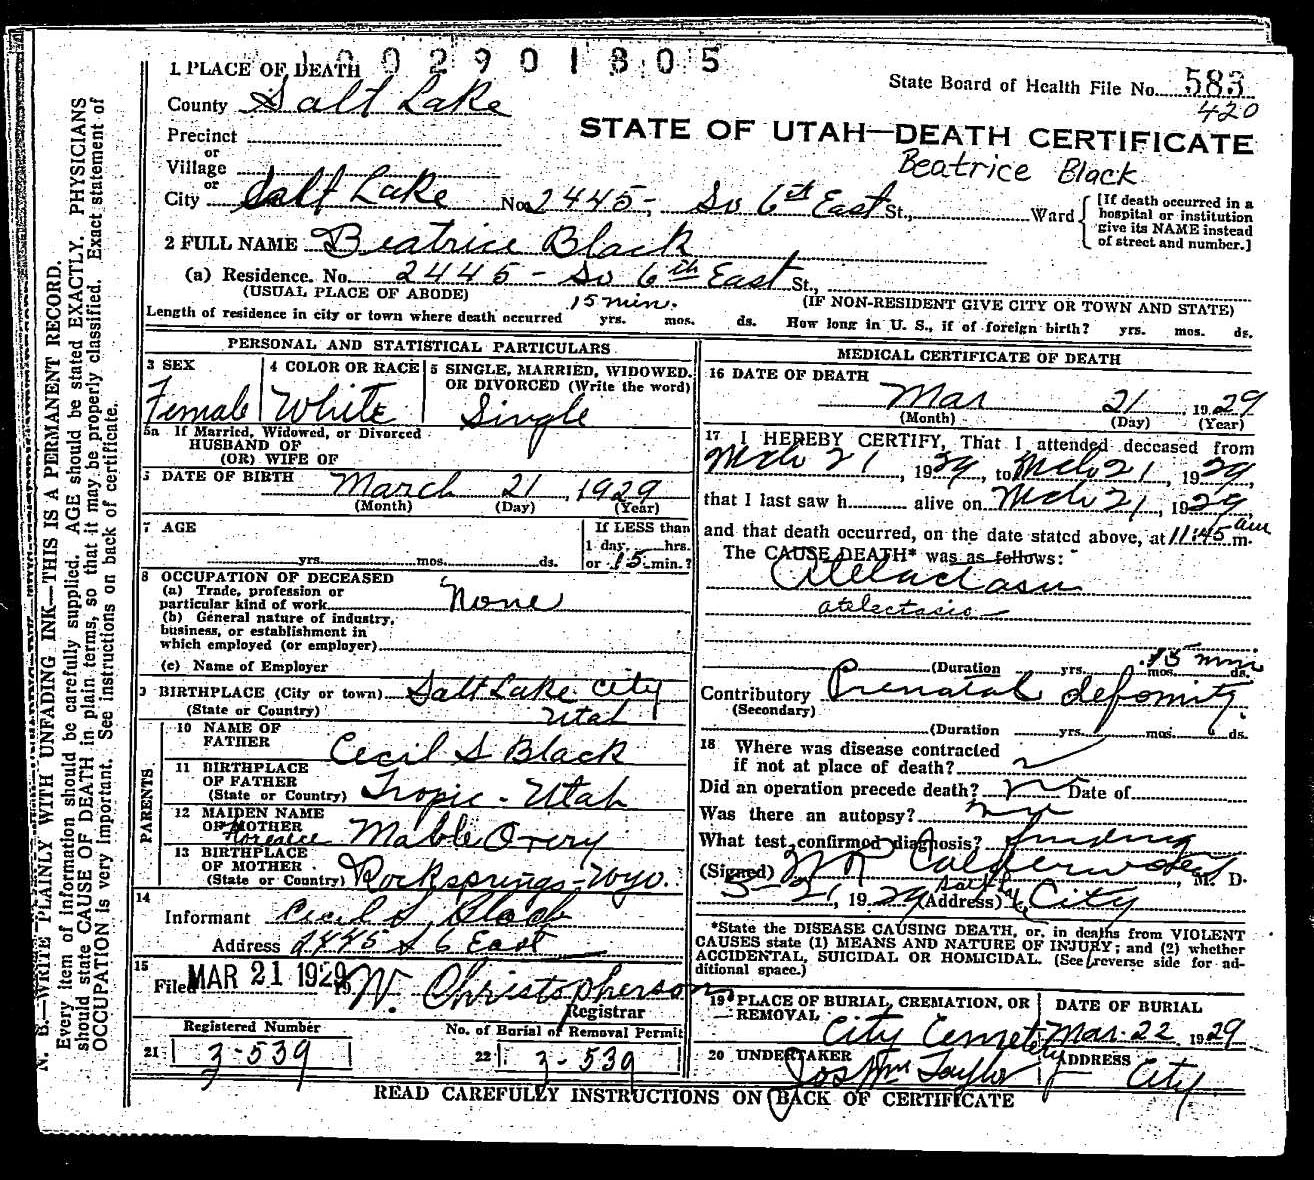 1002901305
1 PLACE OF DEATH
State Board of Health File No. 583
County Salt Lake
420
Precinct
STATE OF UTAH—DEATH CERTIFICATE
or
Village
Beatrice Black
or
City Salt Lake No. 2445- So 6th East St., Ward
[If death occurred in a
hospital or institution
give its NAME instead
of street and number.]
2 FULL NAME Beatrice Black
(a) Residence. No. 2445 - So 6th East St.,
(USUAL PLACE OF ABODE)
(IF NON-RESIDENT GIVE CITY OR TOWN AND STATE)
15 min.
Length of residence in city or town where death occurred yrs. mos. ds. How long in U. S., if of foreign birth? yrs. mos. ds.
PERSONAL AND STATISTICAL PARTICULARS
3 SEX
Female
4 COLOR OR RACE
White
5 SINGLE, MARRIED, WIDOWED,
OR DIVORCED (Write the word)
Single
5a If Married, Widowed, or Divorced
HUSBAND OF
(OR) WIFE OF
6 DATE OF BIRTH March 21, 1929
(Month) (Day) (Year)
7 AGE
yrs. mos. ds.
If LESS than
1 day hrs.
or 15 min.?
8 OCCUPATION OF DECEASED
(a) Trade, profession or
particular kind of work None
(b) General nature of industry,
business, or establishment in
which employed (or employer)
(c) Name of Employer
9 BIRTHPLACE (City or town) Salt Lake City
(State or Country) Utah
PARENTS
10 NAME OF
FATHER Cecil S Black
11 BIRTHPLACE
OF FATHER
(State or Country) Tropic - Utah
12 MAIDEN NAME
OF MOTHER Florence Mable Overy
13 BIRTHPLACE
OF MOTHER
(State or Country) Rocksprings-Wyo.
14
Informant Cecil S. Black
Address 2445 S 6 East
15
Filed MAR 21 1929 W. Christopherson
Registrar
Registered Number
21 3-539
No. of Burial or Removal Permit
22 3-539
MEDICAL CERTIFICATE OF DEATH
16 DATE OF DEATH
Mar 21, 1929
(Month) (Day) (Year)
17 I HEREBY CERTIFY, That I attended deceased from
Mch 21, 1929, to Mch 21, 1929,
that I last saw h alive on Mch 21, 1929,
and that death occurred, on the date stated above, at 11:45 am m.
The CAUSE DEATH* was as follows:
Atelactasis
atelectasis
(Duration yrs. mos. ds.
15 min
Contributory Prenatal defomity.
(Secondary)
(Duration yrs. mos. ds.
18 Where was disease contracted
if not at place of death?
Did an operation precede death? no Date of
Was there an autopsy? no
What test confirmed diagnosis? findings
(Signed) Calderwood, M. D.
3-21, 1929 (Address) Salt Lake City
*State the DISEASE CAUSING DEATH, or, in deaths from VIOLENT
CAUSES state (1) MEANS AND NATURE OF INJURY; and (2) whether
ACCIDENTAL, SUICIDAL OR HOMICIDAL. (See reverse side for ad-
ditional space.)
19 PLACE OF BURIAL, CREMATION, OR
REMOVAL
City Cemetery
DATE OF BURIAL
Mar. 22 1929
20 UNDERTAKER
Jos Wm Taylor
ADDRESS
City
READ CAREFULLY INSTRUCTIONS ON BACK OF CERTIFICATE
N. B.—WRITE PLAINLY WITH UNFADING INK—THIS IS A PERMANENT RECORD.
Every item of information should be carefully supplied. AGE should be stated EXACTLY. PHYSICIANS
should state CAUSE OF DEATH in plain terms, so that it may be properly classified. Exact statement of
OCCUPATION is very important. See instructions on back of certificate.